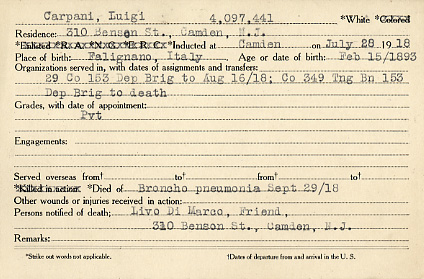 Carpani, Luigi 4,097,441 *White *Colored
Residence: 310 Benson St., Camden, N.J.
*Enlisted *R.A. *N.G. *E.R.C. *Inducted at Camden on July 28 1918
Place of birth: Falignano, Italy. Age or date of birth: Feb 15/1893
Organizations served in, with dates of assignments and transfers:
29 Co 153 Dep Brig to Aug 16/18; Co 349 Tng Bn 153
Dep Brig to death
Grades, with date of appointment:
Pvt
Engagements:
Served overseas from† to† from† to†
*Killed in action *Died of Broncho pneumonia Sept 29/18
Other wounds or injuries received in action:
Persons notified of death; Livo Di Marco, Friend,
310 Benson St., Camden, N.J.
Remarks:
*Strike out words not applicable. †Dates of departure from and arrival in the U. S.